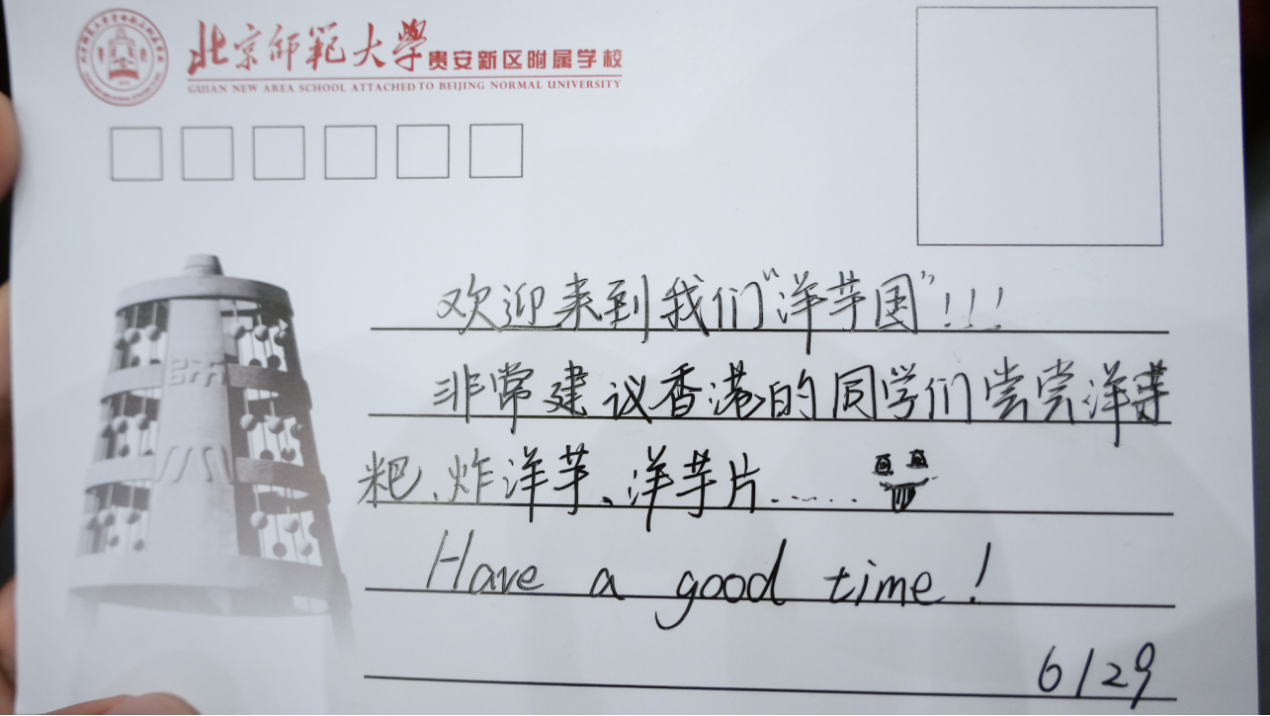 北京师范大学贵安新区附属学校
GUIAN NEW AREA SCHOOL ATTACHED TO BEIJING NORMAL UNIVERSITY
欢迎来到我们“洋芋国”!!!
非常建议香港的同学们尝尝洋芋
粑、炸洋芋、洋芋片......
Have a good time!
6/29